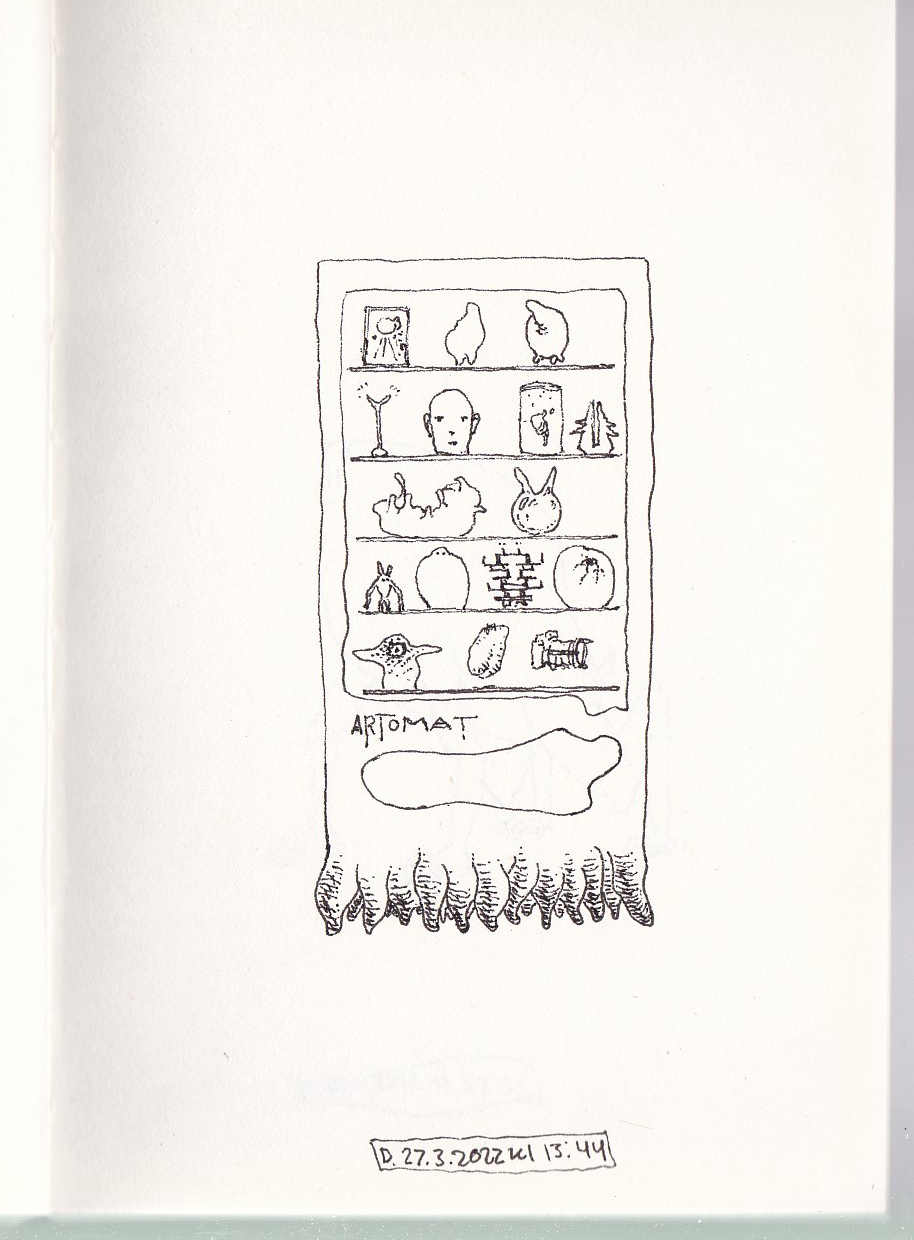 ARTOMAT
D. 27.3.2022 kl 13:44